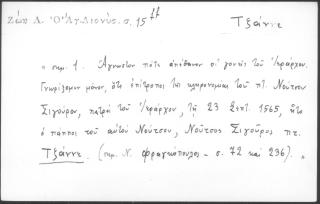 Ζώη Λ. Ὁ Ἅγ. Διονύσ. σ. 15 ff
Τζάννε
" σημ. 1. Ἄγνωστον πότε ἀπέθανον οἱ γονεῖς τοῦ Ἱεράρχου.
Γνωρίζομεν μόνον, ὅτι ἐπίτροπος τῆς κληρονομίας τοῦ ποτ. Νούτσου
Σιγούρου, πατρὸς τοῦ Ἱεράρχου, τῇ 23 Σεπτ. 1565, ἦτο
ὁ πάππος τοῦ αὐτοῦ Νούτσου, Νούτσος Σιγοῦρος ποτ.
Τζάννε. (σημ. Ν. Φραγκόπουλος - σ. 72 καὶ 236). "